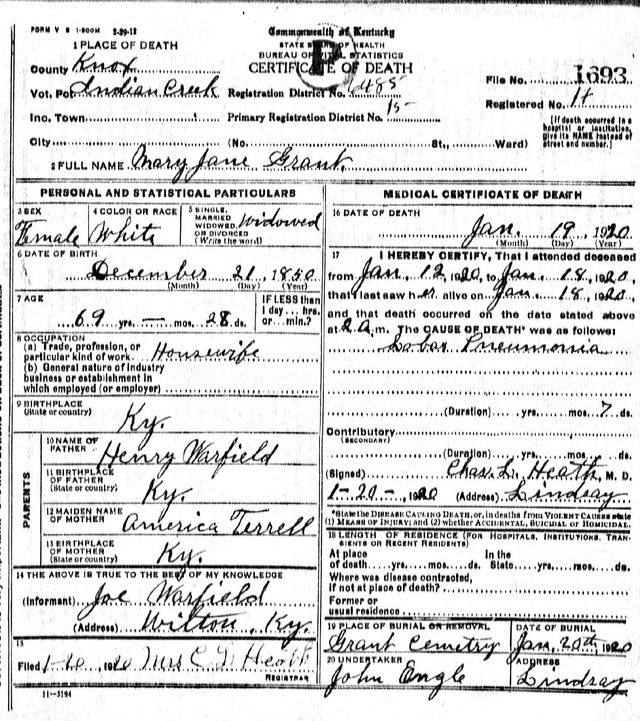 FORM V S 1-500M 3-29-12
Commonwealth of Kentucky
STATE BOARD OF HEALTH
BUREAU OF VITAL STATISTICS
CERTIFICATE OF DEATH
P
1 PLACE OF DEATH
County Knox
Vot. Pct. Indian Creek
Inc. Town
City
Registration District No. 6485
Primary Registration District No. 15-
(No. St., Ward)
File No. 1693
Registered No.
[If death occurred in a
hospital or institution,
give its NAME instead of
street and number.]
2 FULL NAME Mary Jane Grant
PERSONAL AND STATISTICAL PARTICULARS
3 SEX
Female
4 COLOR OR RACE
White
5 SINGLE,
MARRIED
WIDOWED,
OR DIVORCED
(Write the word)
Widowed
6 DATE OF BIRTH
December 21, 1850
(Month) (Day) (Year)
7 AGE
69 yrs. — mos. 28 ds.
IF LESS than
1 day... hrs.
or... min.?
8 OCCUPATION
(a) Trade, profession, or
particular kind of work. Housewife
(b) General nature of industry
business or establishment in
which employed (or employer)
9 BIRTHPLACE
(State or country) Ky.
PARENTS
10 NAME OF
FATHER Henry Warfield
11 BIRTHPLACE
OF FATHER
(State or country) Ky.
12 MAIDEN NAME
OF MOTHER America Terrell
13 BIRTHPLACE
OF MOTHER
(State or country) Ky.
14 THE ABOVE IS TRUE TO THE BEST OF MY KNOWLEDGE
(Informant) Joe Warfield
(Address) Wilton, Ky.
15
Filed 1-20 1920 Mrs C. L. Heath
REGISTRAR
11-3184
MEDICAL CERTIFICATE OF DEATH
16 DATE OF DEATH
Jan. 19 1920
(Month) (Day) (Year)
17 I HEREBY CERTIFY, That I attended deceased
from Jan. 12 1920, to Jan. 18, 1920,
that I last saw her alive on Jan. 18, 1920
and that death occurred on the date stated above
at 2 a.m. The CAUSE OF DEATH* was as follows:
Lobar Pneumonia
(Duration) yrs. mos. 7 ds.
Contributory
(SECONDARY)
(Duration) yrs. mos. ds.
(Signed) Chas. L. Heath, M. D.
1-20-, 1920 (Address) Lindsay
*State the DISEASE CAUSING DEATH, or, in deaths from VIOLENT CAUSES state
(1) MEANS OF INJURY; and (2) whether ACCIDENTAL, SUICIDAL or HOMICIDAL.
18 LENGTH OF RESIDENCE (FOR HOSPITALS, INSTITUTIONS, TRAN-
SIENTS OR RECENT RESIDENTS)
At place In the
of death yrs. mos. ds. State yrs. mos. ds.
Where was disease contracted,
if not at place of death?
Former or
usual residence
19 PLACE OF BURIAL OR REMOVAL
Grant Cemetry
DATE OF BURIAL
Jan. 20th, 1920
20 UNDERTAKER
John Engle
ADDRESS
Lindsay